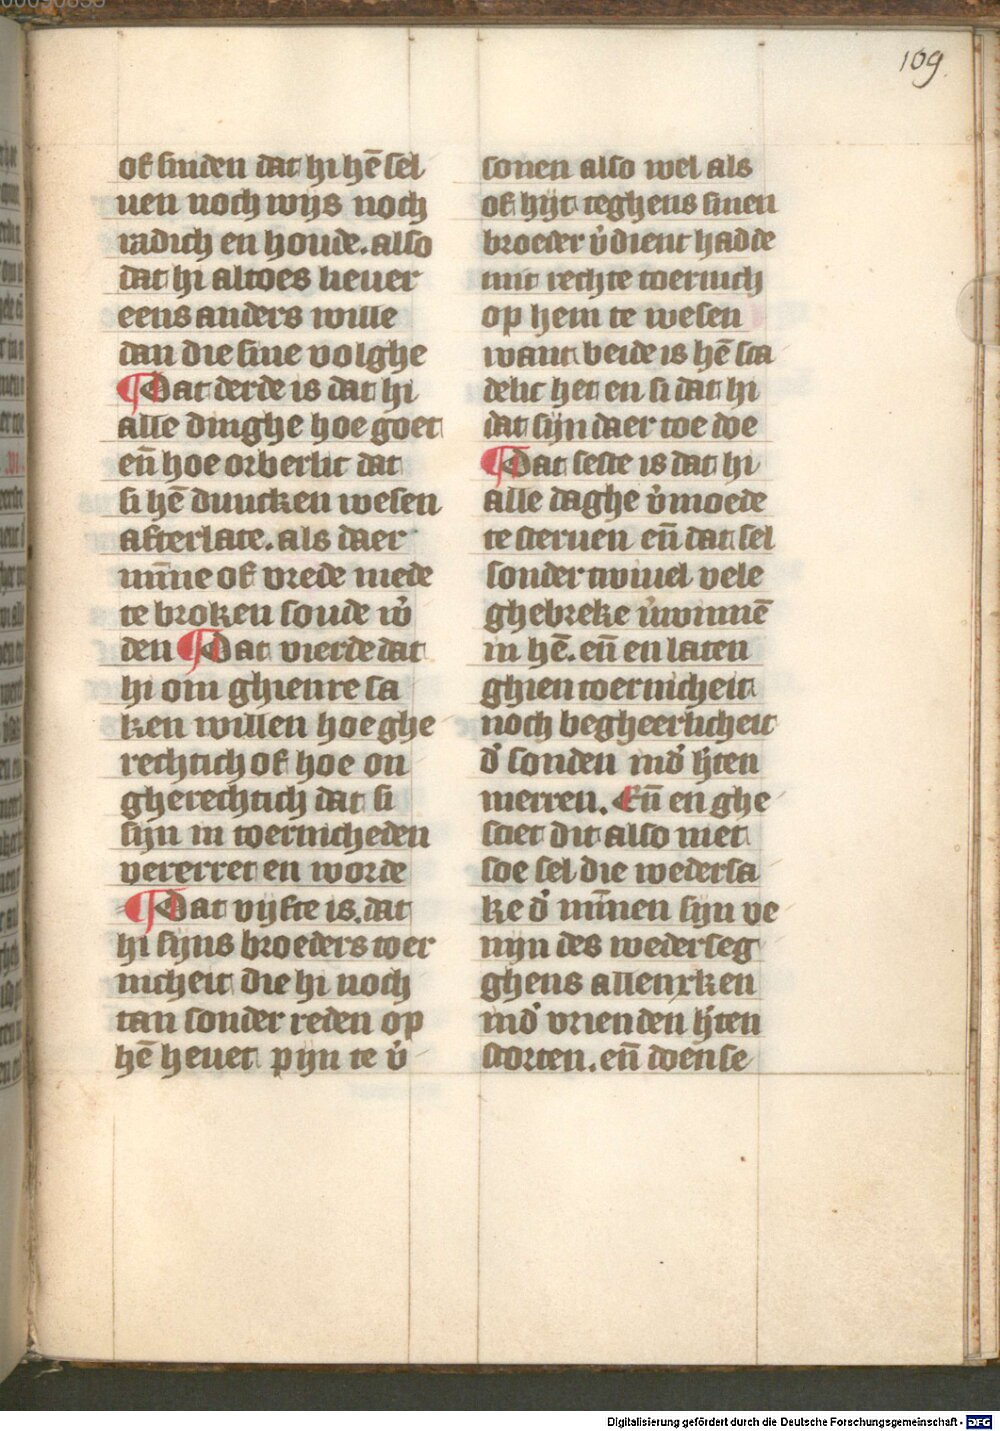 109
of sinden dat hi hē sel
uen noch wijs noch
radich en houde. also
dat hi altoes lieuer
eens anders wille
dan die sine volghe
¶ Dat derde is dat hi
alle dinghe hoe goet
eñ hoe orberlic dat
si hē duncken wesen
afterlate. als daer
mīne of vrede mede
te broken soude w̾
den ¶ Dat vierde dat
hi om ghienre sa
ken willen hoe ghe
rechtich of hoe on
gherechtich dat si
sijn in toernicheden
vererret en worde
¶ Dat vijfte is. dat
hi sijns broeders toer
nicheit die hi noch
tan sonder reden op
hē heuet pijn te v̾
sonen also wel als
of hijt teghens sinen
broeder v̾dient hadde
mit rechte toernich
op hem te wesen
want beide is hē sca
delic het en si dat hi
dat sijn daer toe doe
¶ Dat seste is dat hi
alle daghe v̾moede
te steruen eñ dat sel
sonder twiuel vele
ghebreke v̾winnē
in hē. eñ en laten
ghien toernicheit
noch begheerlicheit
d̾ sonden ind̾ h̾ten
merren. Eñ en ghe
sciet dit also niet
soe sel die wedersa
ke d̾ mīnen sijn ve
nijn des wederseg
ghens allenxken
ind̾ vrienden h̾ten
storten. eñ doen se
Digitalisierung gefördert durch die Deutsche Forschungsgemeinschaft - DFG